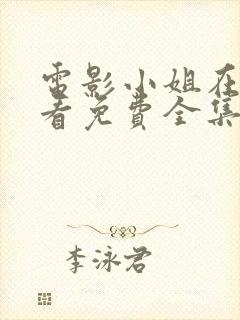 電影小姐在
看免費全集
李泳君